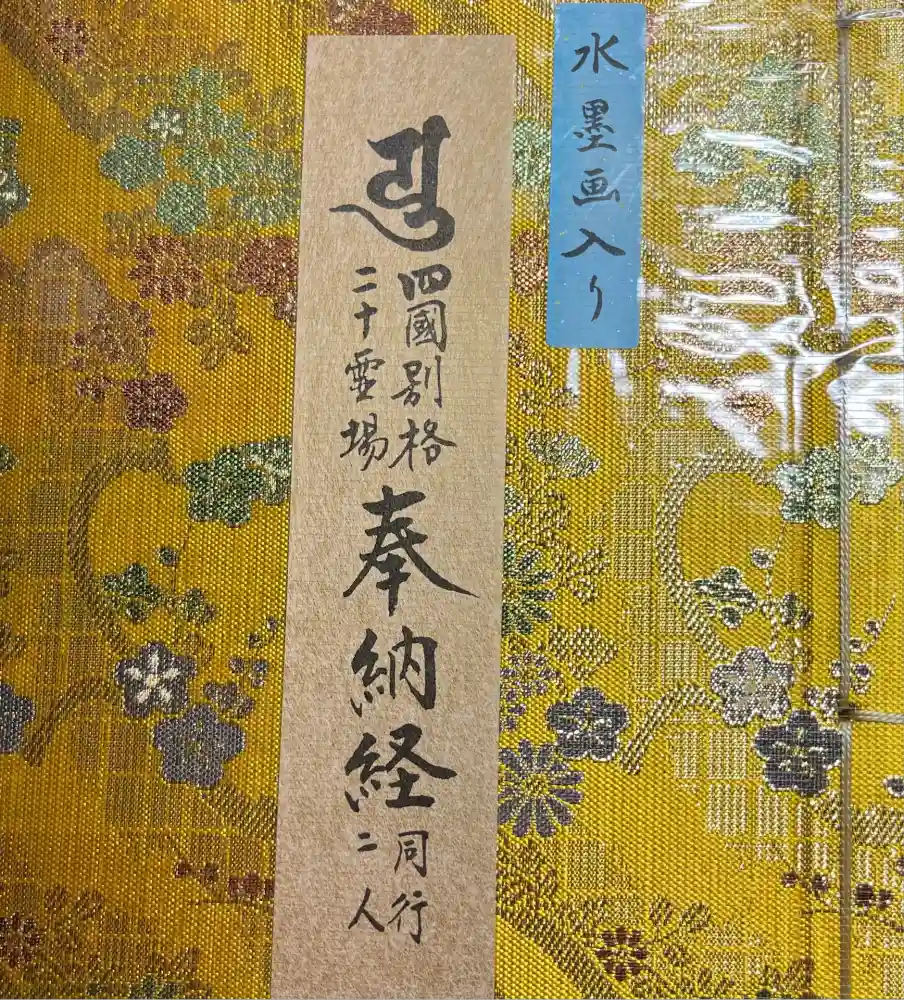 水墨画入り
𑖧𑖲
四國別格
二十霊場
奉納経
同行
二人